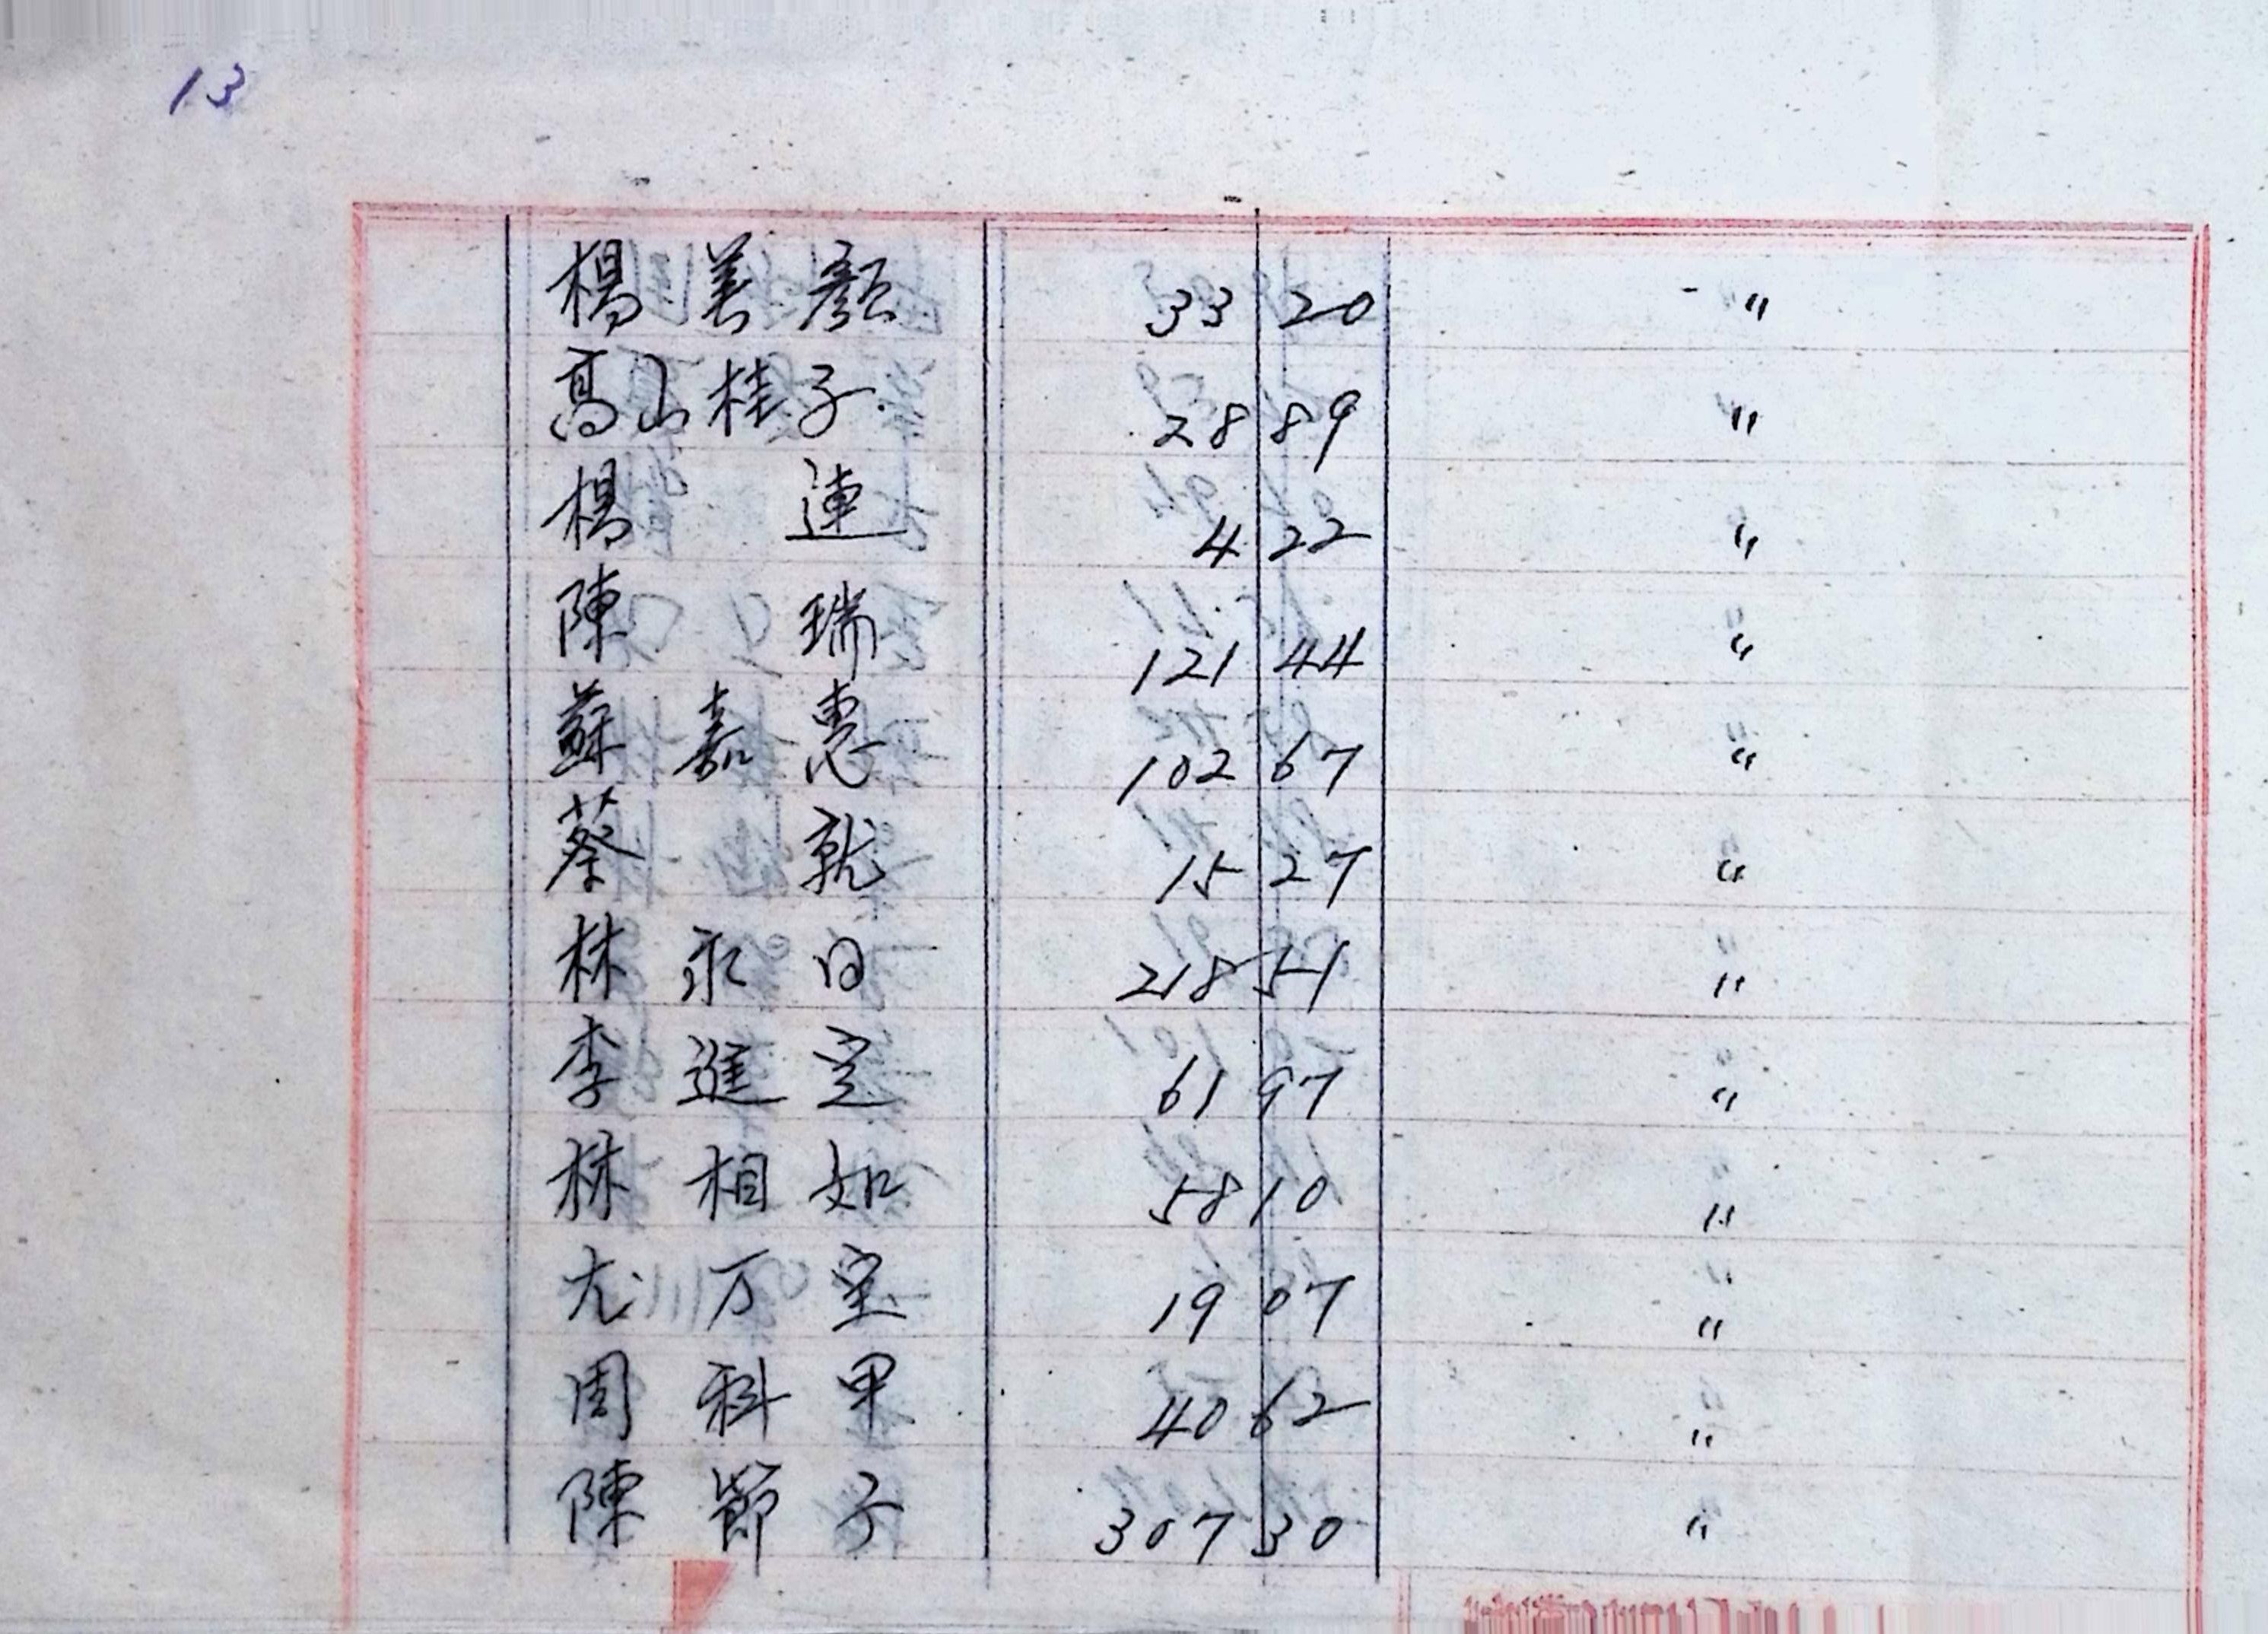 13
楊美顏 33 20 〃
高山桂子 28 89 〃
楊連 4 22 〃
陳瑞 121 44 〃
蘇嘉惠 102 67 〃
蔡就 15 27 〃
林永日 218 51 〃
李進宝 61 97 〃
林相如 58 10 〃
尤万宝 19 07 〃
周科甲 40 62 〃
陳節子 307 30 〃